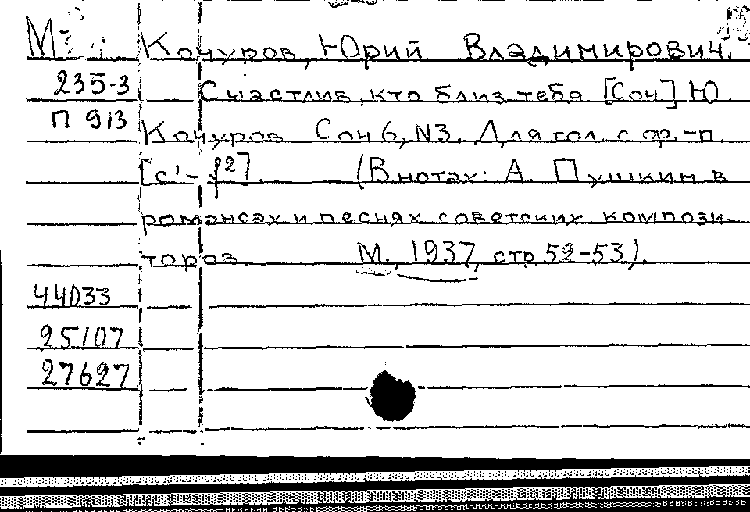 Кочуров, Юрий Владимирович.
235-3 Счастлив, кто близ тебя [Соч] Ю
П 913 Кочуров Соч 6, N3. Для гол. с фр.-п.
(В нотах: А. Пушкин в
романсах и песнях советских компози-
торов М., 1937, стр. 52-53).
44033
25107
27627